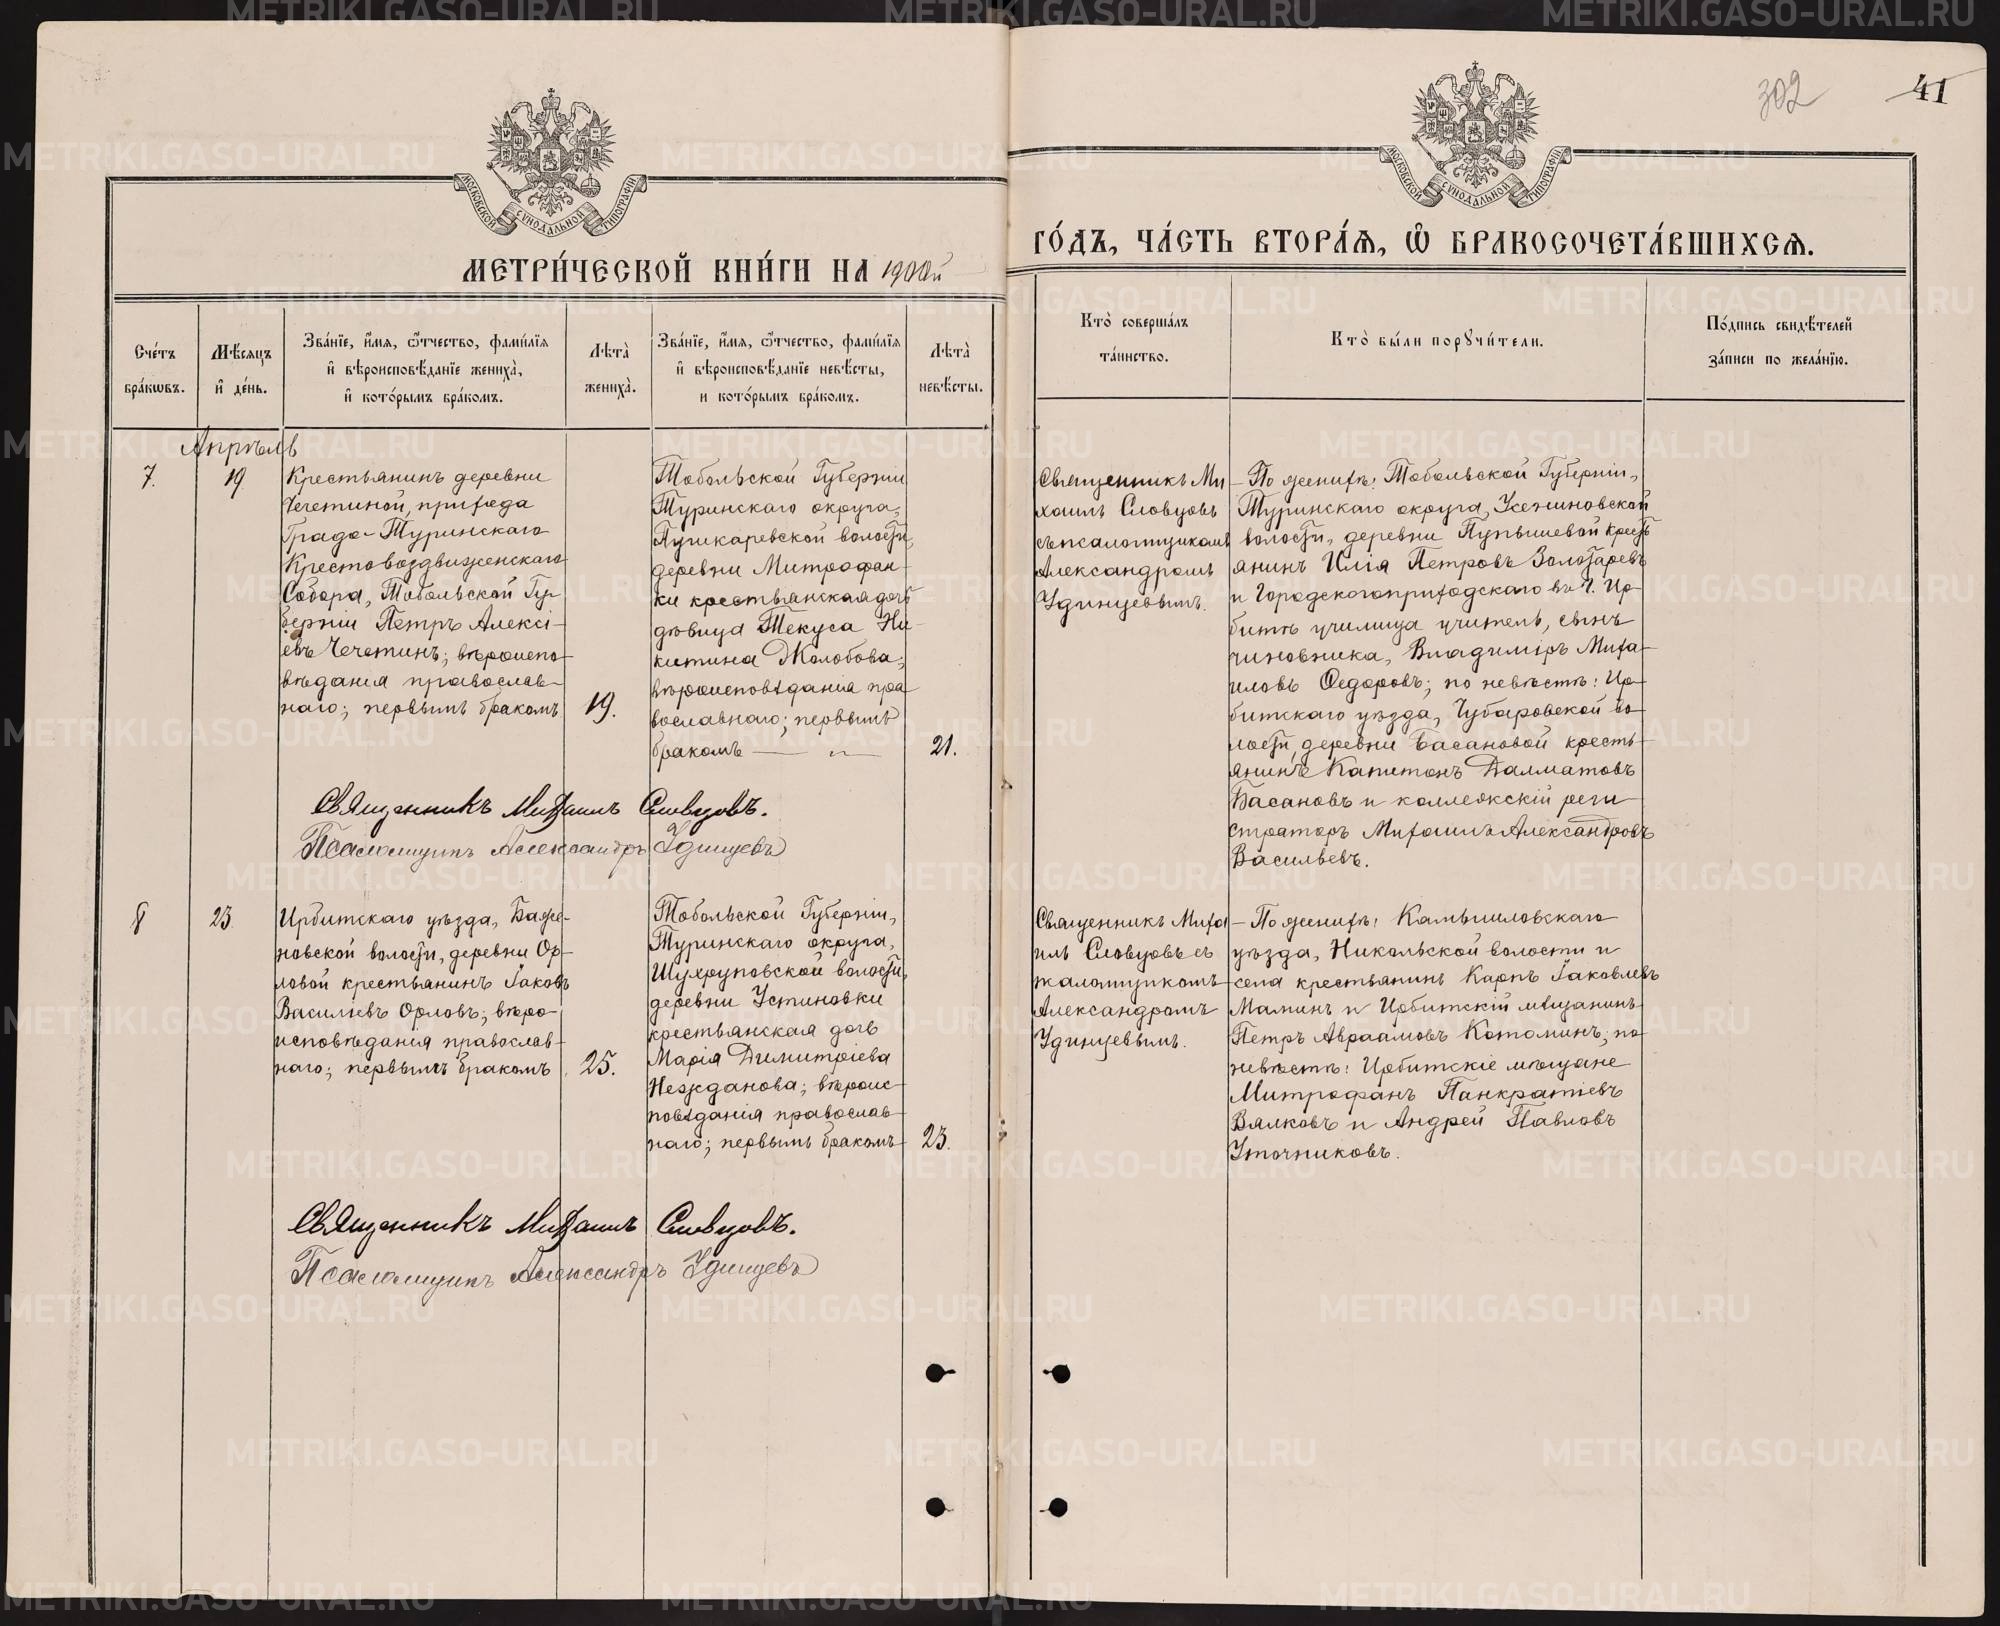 302
41
МОСКОВСКОЙ СУНОДАЛЬНОЙ ТИПОГРАФІИ
МОСКОВСКОЙ СУНОДАЛЬНОЙ ТИПОГРАФІИ
МЕТРИ́ЧЕСКОЙ КНИ́ГИ НА 1900й
ГО́ДЪ, ЧА́СТЬ ВТОРА́Я, Ѡ҆ БРАКОСОЧЕТА́ВШИХСѦ.
Сче́тъ бра́кѡвъ.
Мѣ́сѧцъ и҆ де́нь.
Зва́нїе, и҆́мѧ, ѻ҆́тчество, фами́лїѧ и҆ вѣроисповѣ́данїе жениха̀, и҆ кото́рымъ бра́комъ.
Лѣта̀ жениха̀.
Зва́нїе, и҆́мѧ, ѻ҆́тчество, фами́лїѧ и҆ вѣроисповѣ́данїе невѣ́сты, и кото́рымъ бра́комъ.
Лѣта̀ невѣ́сты.
Кто̀ соверша́лъ та́инство.
Кто̀ бы́ли порꙋчи́тели.
По́дпись свидѣ́телей за́писи по жела́нїю.
Апрѣль
7.
19
Крестьянинъ деревни
Чечетиной, прихода
Градо-Туринскаго
Крестовоздвиженскаго
Собора, Тобольской Гу-
берніи Петръ Алексі-
евъ Чечетинъ; вѣроиспо-
вѣданія православ-
наго; первымъ бракомъ
19.
Тобольской Губерніи
Туринскаго округа,
Пушкаревской волости,
деревни Митрофан-
ки крестьянская дочь
дѣвица Ѳекуса Ни-
китина Жолобова;
вѣроисповѣданія пра-
вославнаго; первымъ
бракомъ — „ —
21.
Священникъ Ми-
хаилъ Словцовъ
съ псаломщикомъ
Александромъ
Удинцевымъ.
— По женихѣ: Тобольской Губерніи,
Туринскаго округа, Усениновской
волости, деревни Пупышевой кресть-
янинъ Илія Петровъ Золотаревъ
и Городскогоприходскаго въ г. Ир-
битѣ училища учитель, сынъ
чиновника, Владиміръ Миха-
иловъ Ѳедоровъ; по невѣстѣ: Ир-
битскаго уѣзда, Чубаровской во-
лости, деревни Басановой кресть-
янинъ Капитонъ Далматовъ
Басановъ и коллежскій реги-
страторъ Михаилъ Александровъ
Васильевъ.
Священникъ Михаилъ Словцовъ.
Псаломщикъ Александръ Удинцевъ
8
23
Ирбитскаго уѣзда, Баже-
новской волости, деревни Ор-
ловой крестьянинъ Іаковъ
Василіевъ Орловъ; вѣро-
исповѣданія православ-
наго; первымъ бракомъ
25.
Тобольской Губерніи,
Туринскаго округа,
Шухруповской волости,
деревни Устиновки
крестьянская дочь
Марія Димитріева
Нежданова; вѣроис-
повѣданія православ-
наго; первымъ бракомъ
23.
Священникъ Миха-
илъ Словцовъ съ
псаломщикомъ
Александромъ
Удинцевымъ.
— По женихѣ: Камышловскаго
уѣзда, Никольской волости и
села крестьянинъ Карпъ Іаковлевъ
Маминъ и Ирбитскій мѣщанинъ
Петръ Авраамовъ Котоминъ; по
невѣстѣ: Ирбитскіе мѣщане
Митрофанъ Панкратіевъ
Вялковъ и Андрей Павловъ
Уточниковъ.
Священникъ Михаилъ Словцовъ.
Псаломщикъ Александръ Удинцевъ
METRIKI.GASO-URAL.RU